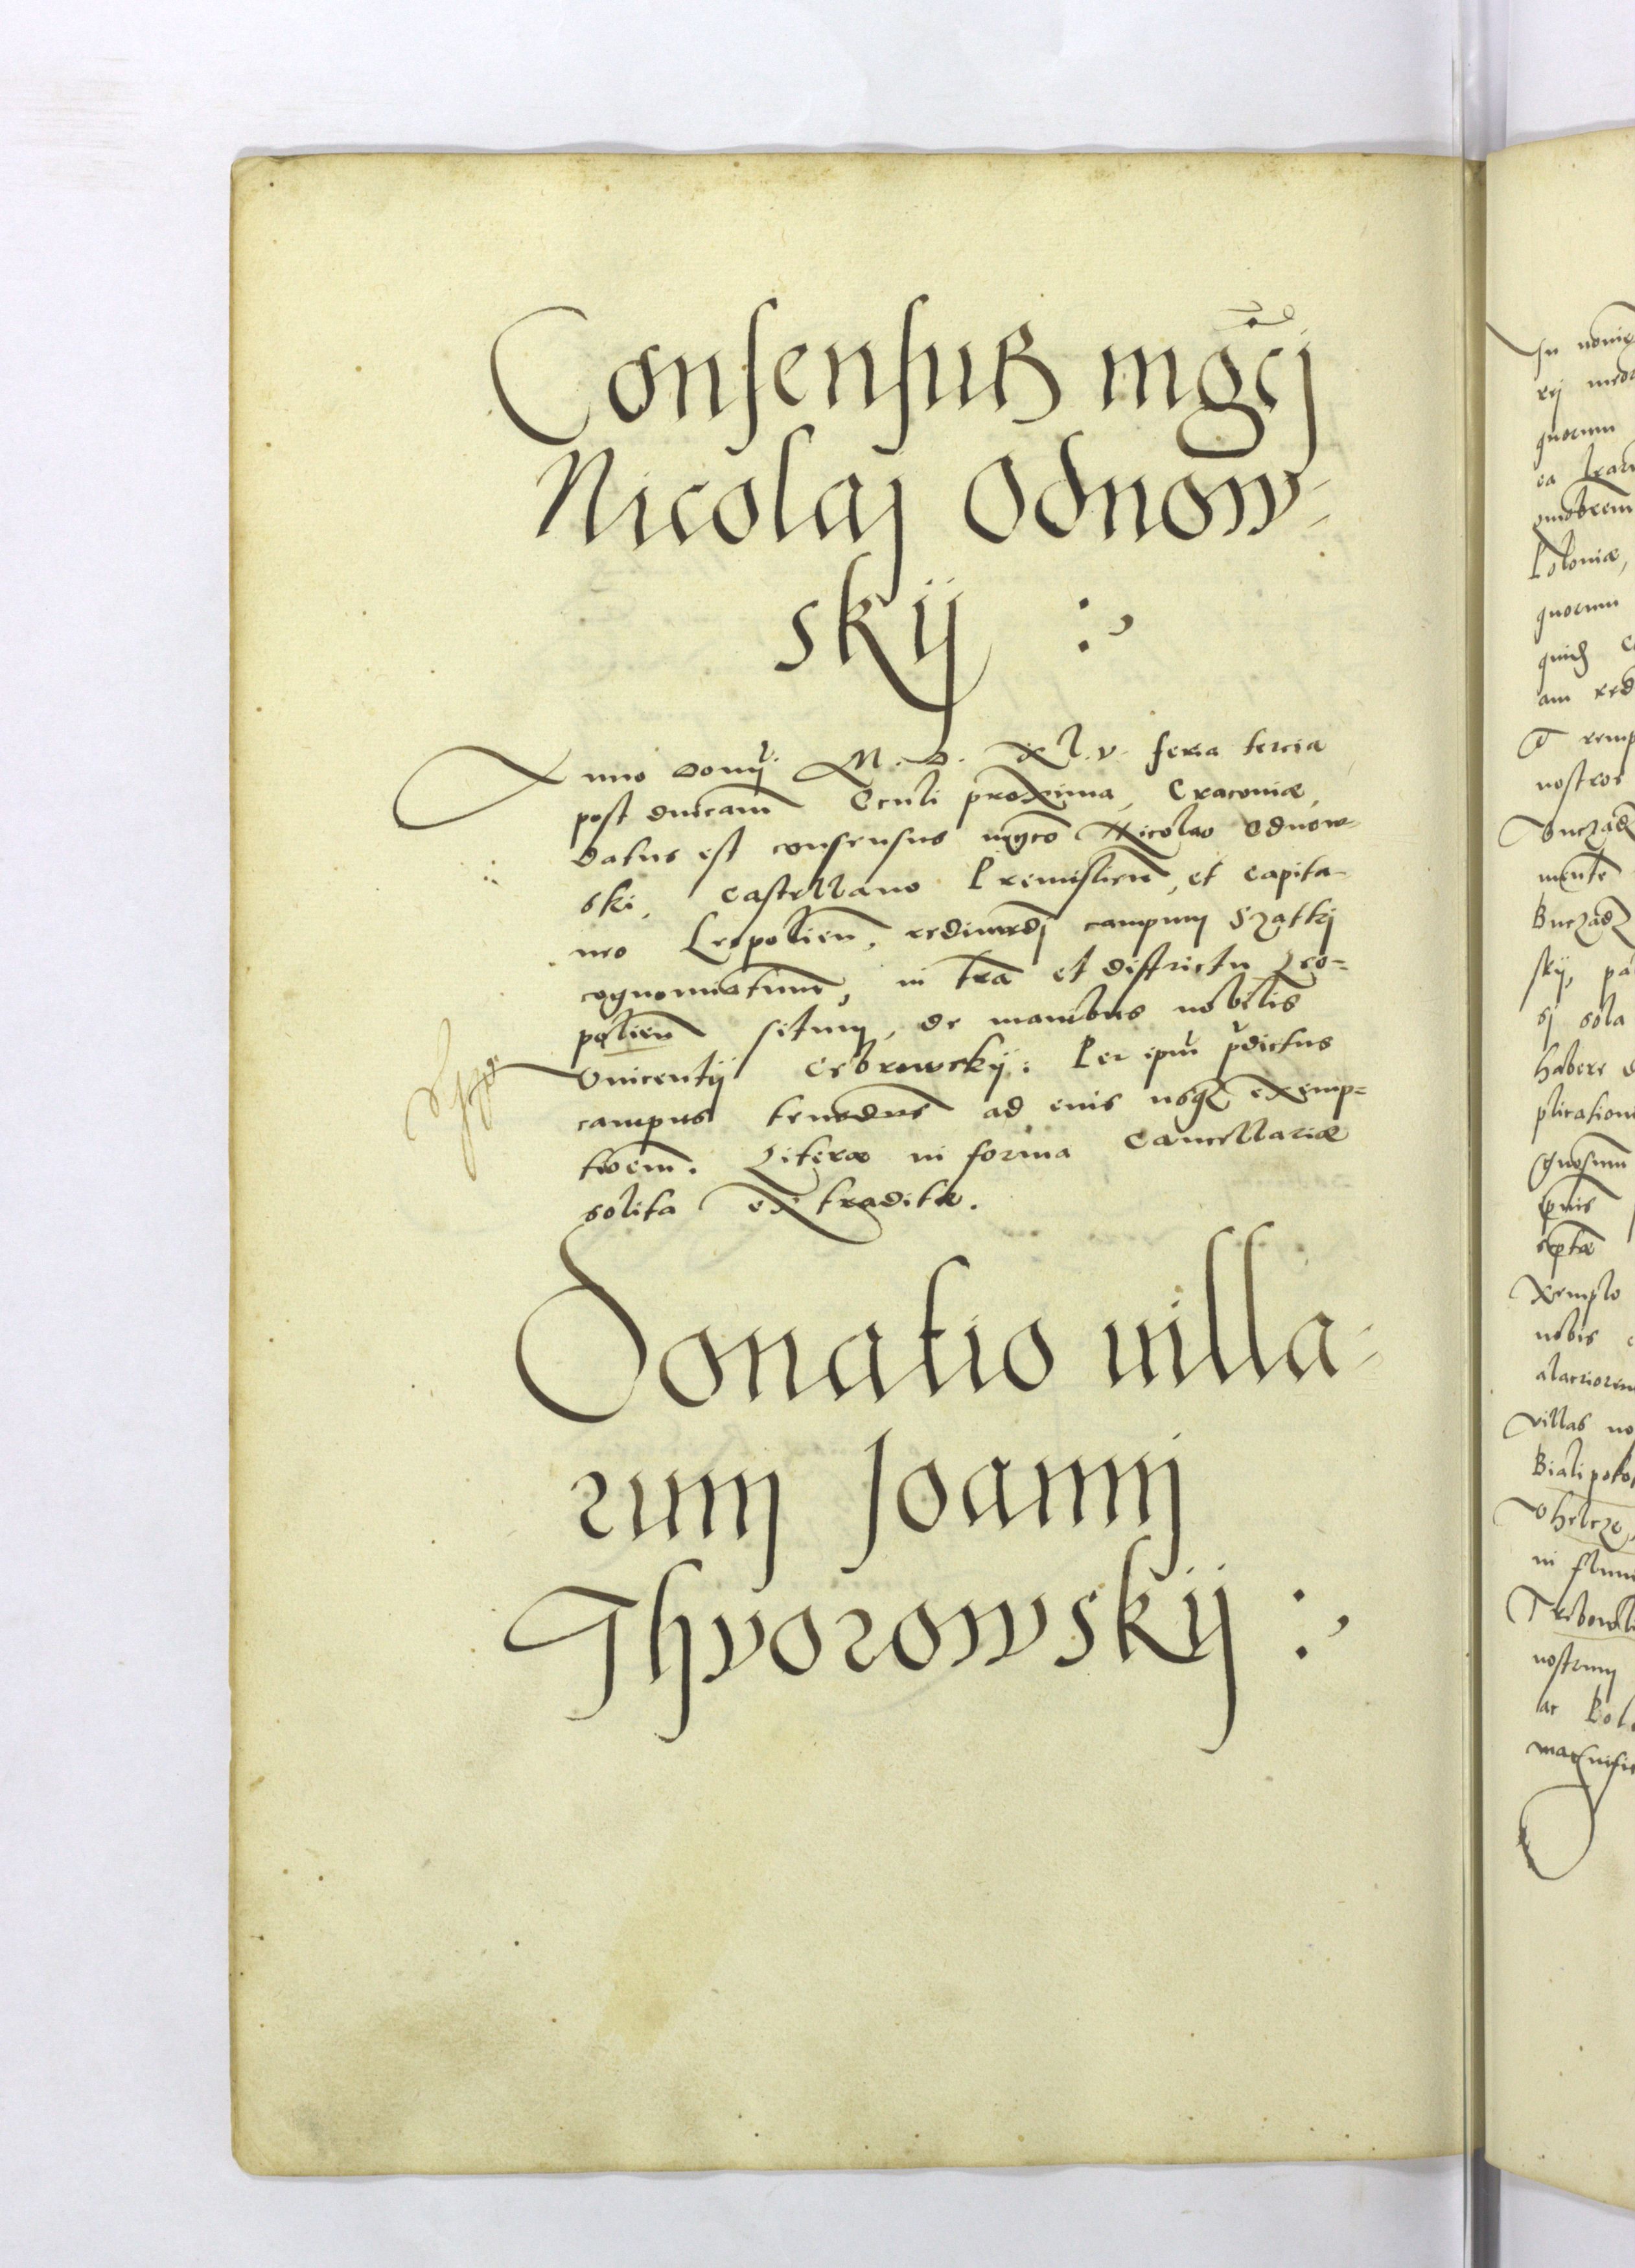 Consensus mgci
Nicolaj Odnow-
skij :
Anno domj. M. D. xl. v. feria tercia
post dnicam Oculi proxima, Cracoviæ,
datus est consensus mgco Nicolao Odnow-
ski, Castellano Premislien, et Capita-
neo Leopolien, redimedj campum Szatkj
cognominatum, in tra et districtu Leo-
polien situm, de manibus nobilis
Vincentij Cebrowskij. Per ipm pdictus
campus tenedus ad eius usq exemp-
tioem. Literæ in forma Cancellariæ
solita extraditæ.
Donatio villa-
rum Joannj
Thvorowskij :
In nomi
rej
quorum
ea
quobrem
Poloniæ,
quorum
quid
am red
nostros
Buczacz
mente
Buczacz
skij, pa
sj sola
habere
plication
nobis
alacriorem
villas no
Bialipotok
in flum
nostrum
ac
magnific